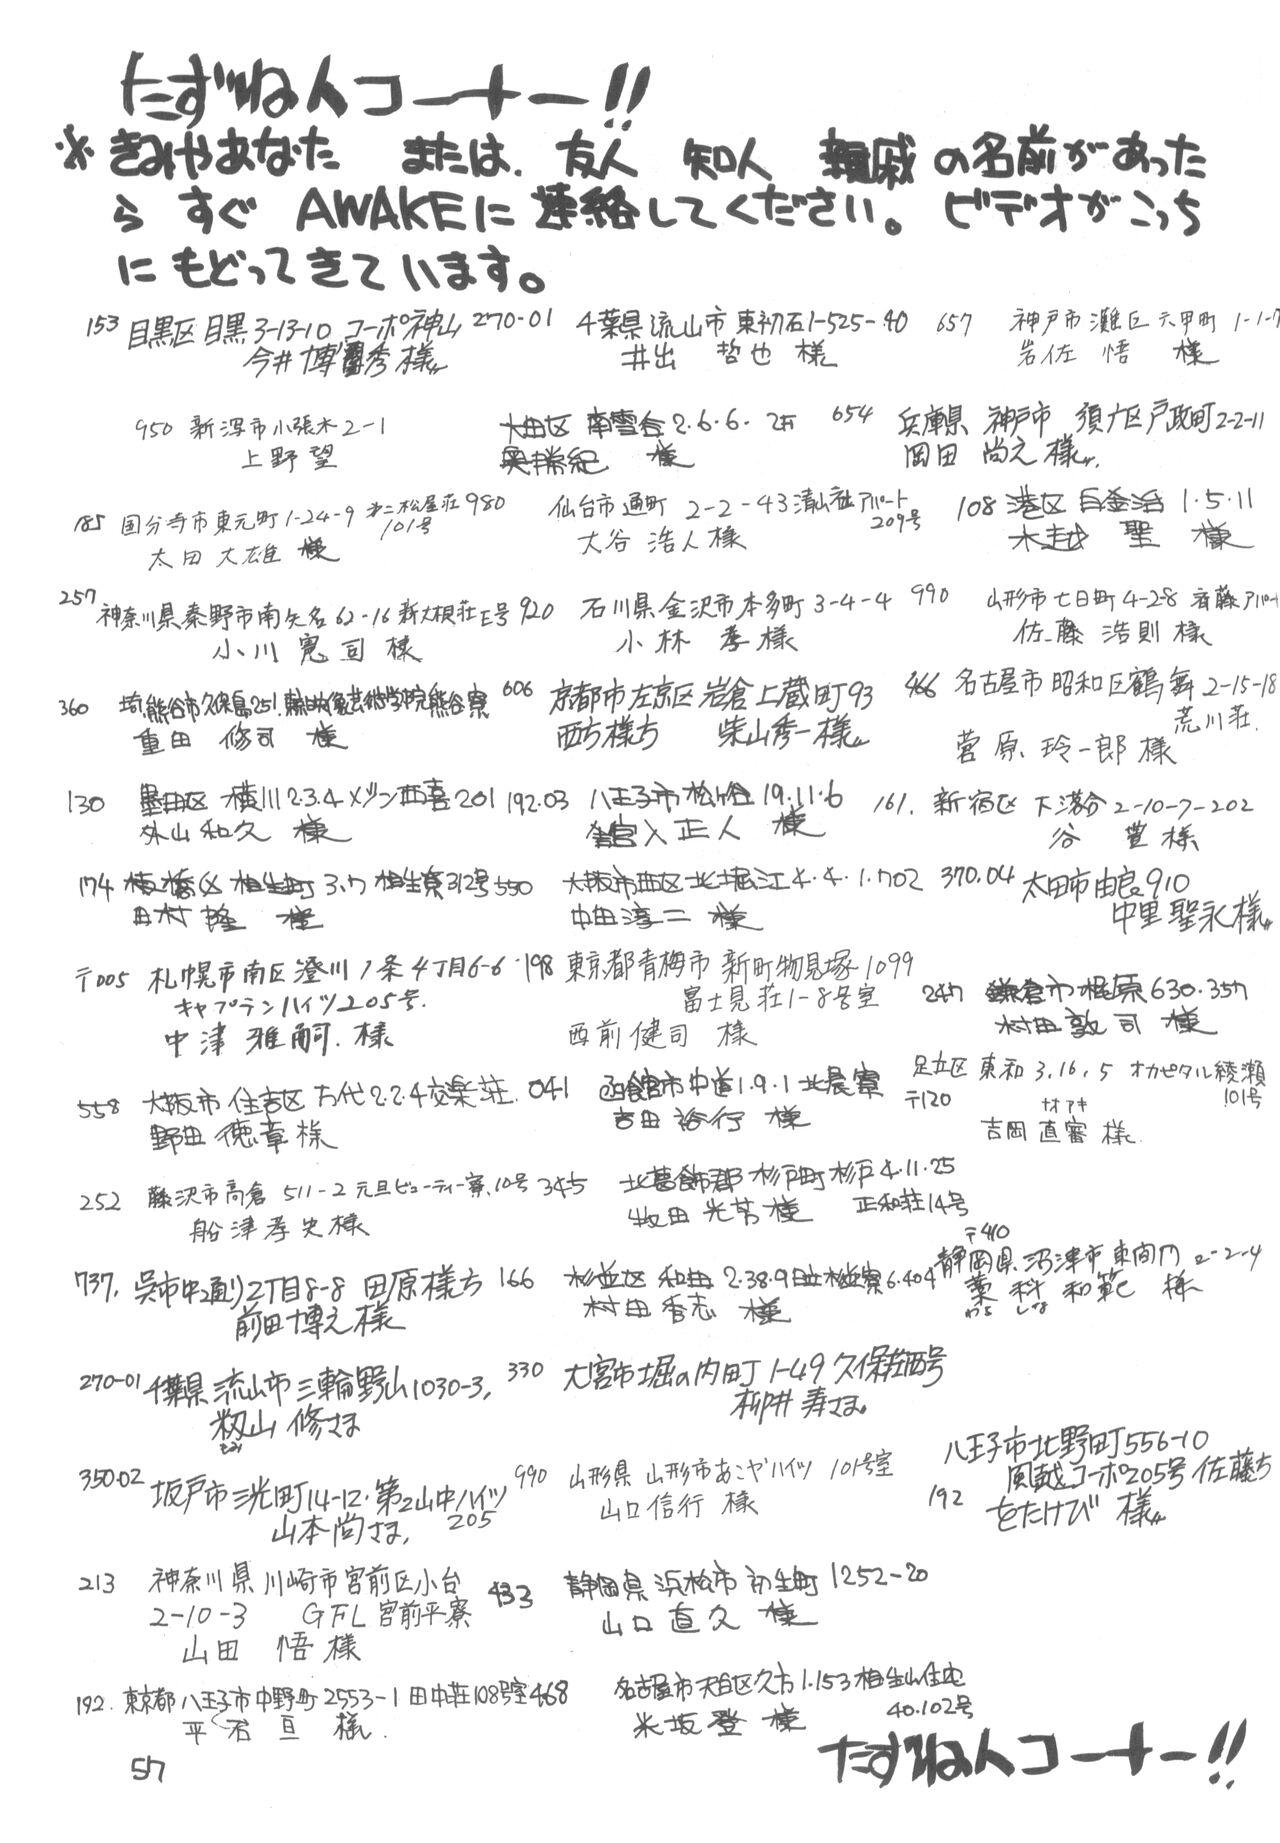 たずね人コーナー!!
※きみやあなた または、友人 知人 親戚 の名前があった
ら すぐ AWAKEに連絡してください。ビデオがこっち
にもどってきています。
153 目黒区 目黒3-13-10 コーポ神山
今井博秀様
270-01 千葉県流山市東初石1-525-40
井出 哲也 様
657 神戸市灘区六甲町 1-1-7
岩佐 悟 様
950 新潟市小張木2-1
上野望
大田区 南雪谷2.6.6.
奥 瑞紀 様
654 兵庫県 神戸市 須广区戸政町2-2-11
岡田 尚之様
185 国分寺市東元町1-24-9 第二松屋荘
101号
太田大雄 様
980 仙台市通町 2-2-43清山荘アパート
209号
大谷浩人様
108 港区 白金台 1.5.11
木越 聖 様
257 神奈川県秦野市南矢名62-16新大根荘E号
小川憲司様
920 石川県金沢市本多町3-4-4
小林 孝様
990 山形市七日町4-28 斉藤アパート
佐藤浩則様
360 埼熊谷市久保島251. 熊谷寮
重田 修司 様
606 京都市左京区岩倉上蔵町93
西方様方 柴山秀一様
466 名古屋市昭和区鶴舞2-15-18
荒川荘.
菅原玲一郎様
130 墨田区 横川2.3.4メゾン西喜201
外山和久 様
192.03 八王子市松ヶ谷19.11.6
宮入正人 様
161. 新宿区下落合2-10-7-202
谷 豊様
174 板橋区 相生町3.7 相生寮312号
田村 隆 様
550 大阪市西区北堀江4.4.1.702
中田淳二 様
370.04 太田市由良910
中里聖永様
〒005 札幌市南区澄川7条4丁目6-6
キャプテンハイツ205号.
中津雅嗣. 様
198 東京都青梅市新町物見塚1099
富士見荘1-8号室
西前健司 様
247 鎌倉市梶原630.357
村田敦司 様
558 大阪市住吉区万代2.2.4交楽荘.
野田徳章様
041 函館市中道1.9.1北晨寮
吉田裕行 様
足立区東和3.16.5 オカピタル綾瀬
101号
〒120
ナオアキ
吉岡直審 様.
252 藤沢市高倉 511-2 元旦ビューティー寮、10号
船津孝史様
345 北葛飾郡杉戸町杉戸4.11.25
正和荘14号
牧田光芳様
〒410
静岡県沼津市東間門2-2-4
藁科和範 様
わら しな
737. 呉市中通り2丁目8-8 田原様方
前田博之様
166 杉並区 和田2.38.9日立松並寮6.404
村田香志 様
270-01 千葉県流山市三輪野山1030-3,
籾山 修さま
もみ
330 大宮市堀の内町1-49久保荘西号
柳井寿さま。
350-02 坂戸市三光町14-12.第2山中ハイツ
205
山本尚さま,
990 山形県 山形市あこやハイツ 101号室
山口信行 様
八王子市北野町556-10
風越コーポ205号佐藤方
192 をたけび 様
213 神奈川県川崎市宮前区小台
2-10-3 GFL宮前平寮
山田 悟様
433 静岡県浜松市初生町1252-20
山口直久 様
192. 東京都八王子市中野町2553-1田中荘108号室
平石 亘 様.
468 名古屋市天白区久方1.153相生山住宅
40.102号
米坂登 様
たずね人コーナー!!
57